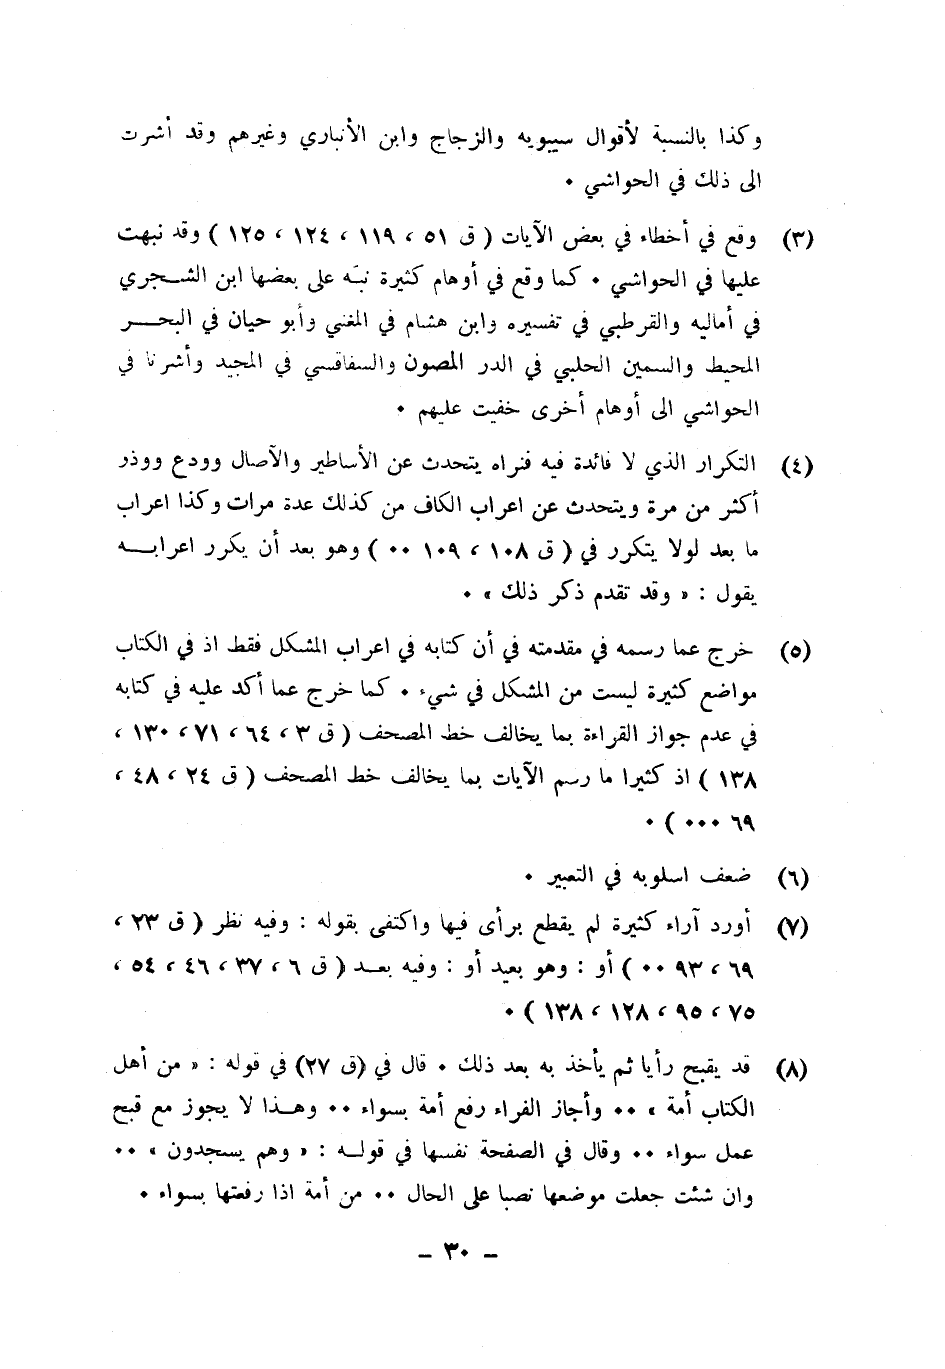 وكذا بالنسبة لأقوال سيبويه والزجاج وابن الأنباري وغيرهم وقد أشرت
الى ذلك في الحواشي ٠
(٣) وقع في أخطاء في بعض الآيات ( ق ٥١ ، ١١٩ ، ١٢٤ ، ١٢٥ ) وقد نبهت
عليها في الحواشي ٠ كما وقع في أوهام كثيرة نبّه على بعضها ابن الشـجري
في أماليه والقرطبي في تفسيره وابن هشام في المغني وأبو حيان في البحــر
المحيط والسمين الحلبي في الدر المصون والسفاقسي في المجيد وأشرنا في
الحواشي الى أوهام أخرى خفيت عليهم ٠
(٤) التكرار الذي لا فائدة فيه فنراه يتحدث عن الأساطير والآصال وودع ووذر
أكثر من مرة ويتحدث عن اعراب الكاف من كذلك عدة مرات وكذا اعراب
ما بعد لولا يتكرر في ( ق ١٠٨ ، ١٠٩ ٠٠ ) وهو بعد أن يكرر اعرابــه
يقول : « وقد تقدم ذكر ذلك » ٠
(٥) خرج عما رسمه في مقدمته في أن كتابه في اعراب المشكل فقط اذ في الكتاب
مواضع كثيرة ليست من المشكل في شيء ٠ كما خرج عما أكد عليه في كتابه
في عدم جواز القراءة بما يخالف خط المصحف ( ق ٣ ، ٦٤ ، ٧١ ، ١٣٠ ،
١٣٨ ) اذ كثيرا ما رسم الآيات بما يخالف خط المصحف ( ق ٢٤ ، ٤٨ ،
٦٩ ٠٠٠ ) ٠
(٦) ضعف اسلوبه في التعبير ٠
(٧) أورد آراء كثيرة لم يقطع برأى فيها واكتفى بقوله : وفيه نظر ( ق ٢٣ ،
٦٩ ، ٩٣ ٠٠ ) أو : وهو بعيد أو : وفيه بعـد ( ق ٦ ، ٣٧ ، ٤٦ ، ٥٤ ،
٧٥ ، ٩٥ ، ١٢٨ ، ١٣٨ ) ٠
(٨) قد يقبح رأيا ثم يأخذ به بعد ذلك ٠ قال في (ق ٢٧) في قوله : « من أهل
الكتاب أمة » ٠٠ وأجاز الفراء رفع أمة بسواء ٠٠ وهـذا لا يجوز مع قبح
عمل سواء ٠٠ وقال في الصفحة نفسها في قولـه : « وهم يسجدون » ٠٠
وان شئت جعلت موضعها نصبا على الحال ٠٠ من أمة اذا رفعتها بسواء ٠
– ٣٠ –